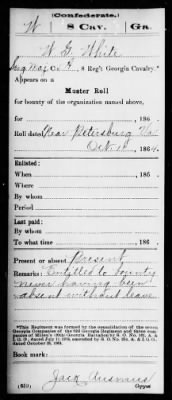 (Confederate.)
W 8 Cav. Ga.
W. G. White
Serg Maj, Co. , 8 Reg't Georgia Cavalry.*
Appears on a
Muster Roll
for bounty of the organization named above,
for , 186 .
Roll dated Near Petersburg Va
Oct. 1st, 1864.
Enlisted:
When , 186 .
Where
By whom
Period
Last paid:
By whom
To what time , 186 .
Present or absent Present
Remarks: Entitled to bounty
never having been
absent without leave
*This Regiment was formed by the consolidation of the seven
Georgia Companies of the 62d Georgia Regiment and three com-
panies of
I. G. O., dated July 11, 1864, amended by S. O. No. , A. &
I. G. O., dated October 28, 1864.
Book mark:
(639) Jack Ausmus
Copyist